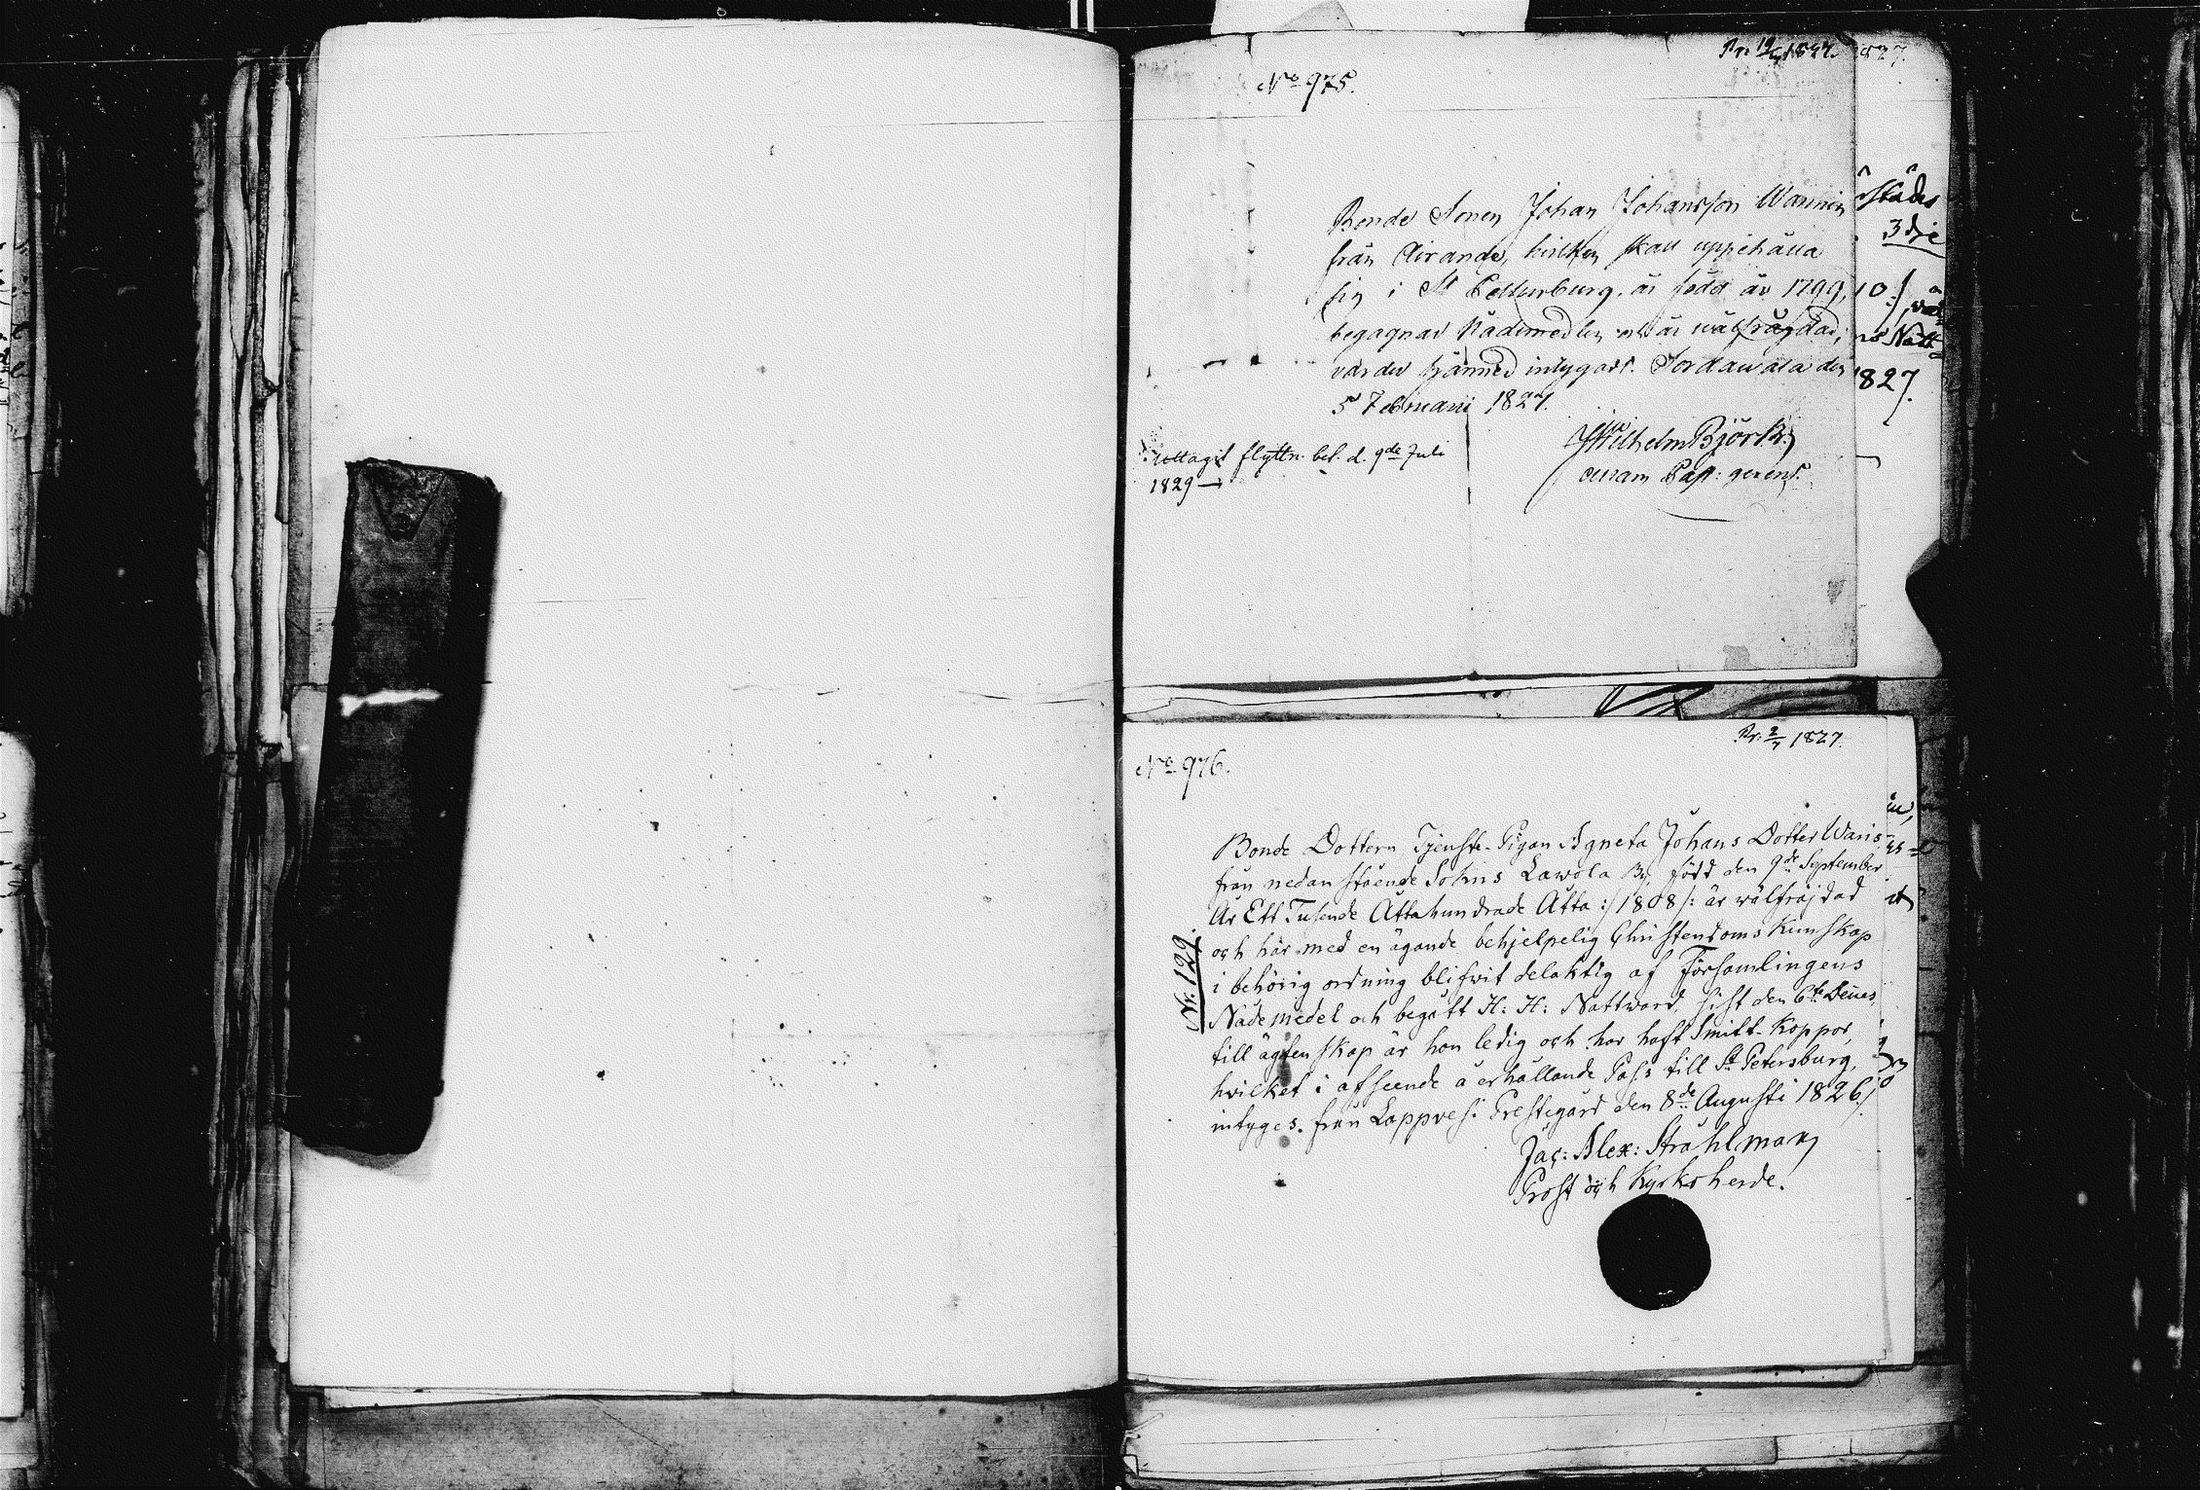 Nᵒ 975.
Bonde Sonen Johan Johansson Wanninen
från Airanda, hvilken skall uppehålla
sig i St Petterburg, är född år 1799,
begagnar Nådemedlen och är wälfrägdad;
varder härmed intygadt. Sordawala den
5 Februarii 1827.
Wilhelm Björk
curam Past: gerens.
Uttagit flyttn. bet. d. 9de Juli
1829
städes
3dje
10:/
Natt=
1827.
Pr. 2/7 1827.
Nᵒ 976.
Nr. 129.
Bonde Dottern Tjenste-Pigan Agneta Johans Dotter Waris
från nedanstående Sokns Lawola By, född den 9de September
År Ett Tusende Åttahundrade Åtta :/1808/: är wälfräjdad
och har med en ägande behjelpelig Christendoms Kunskap
i behörig ordning blifwit delaktig af Församlingens
Nådemedel och begått H: H: Nattward, sist den 6te Dennes,
till ägtenskap är hon ledig och har haft Smitt-Koppor,
hvilket i afseende å erhållande Pass till St Petersburg,
intyges. från Lappvesi Prestegård den 8de Augusti 1826./
Jac: Alex: Stråhlman
Prost och Kyrkoherde.